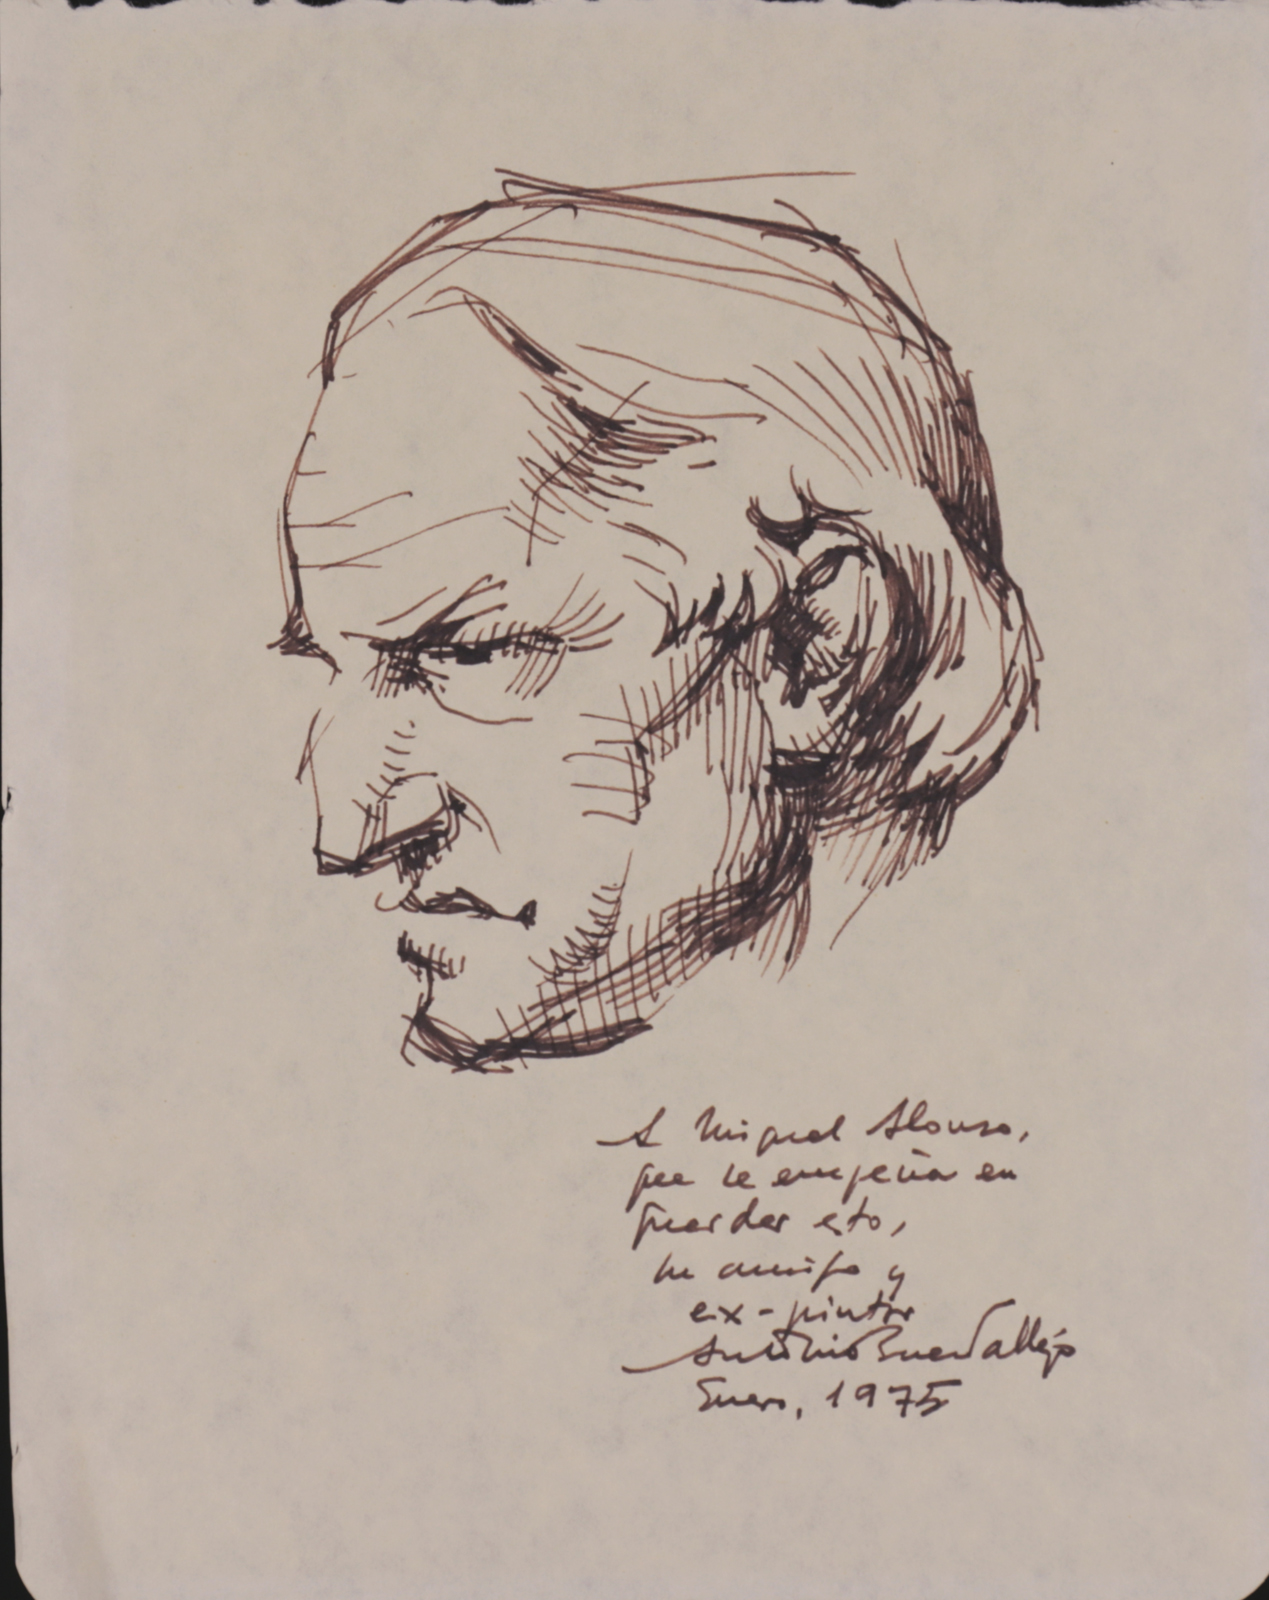 A Miguel Alonso,
que se empeña en
guardar esto,
su amigo y
ex-pintor
Antonio Buero Vallejo
Enero, 1975